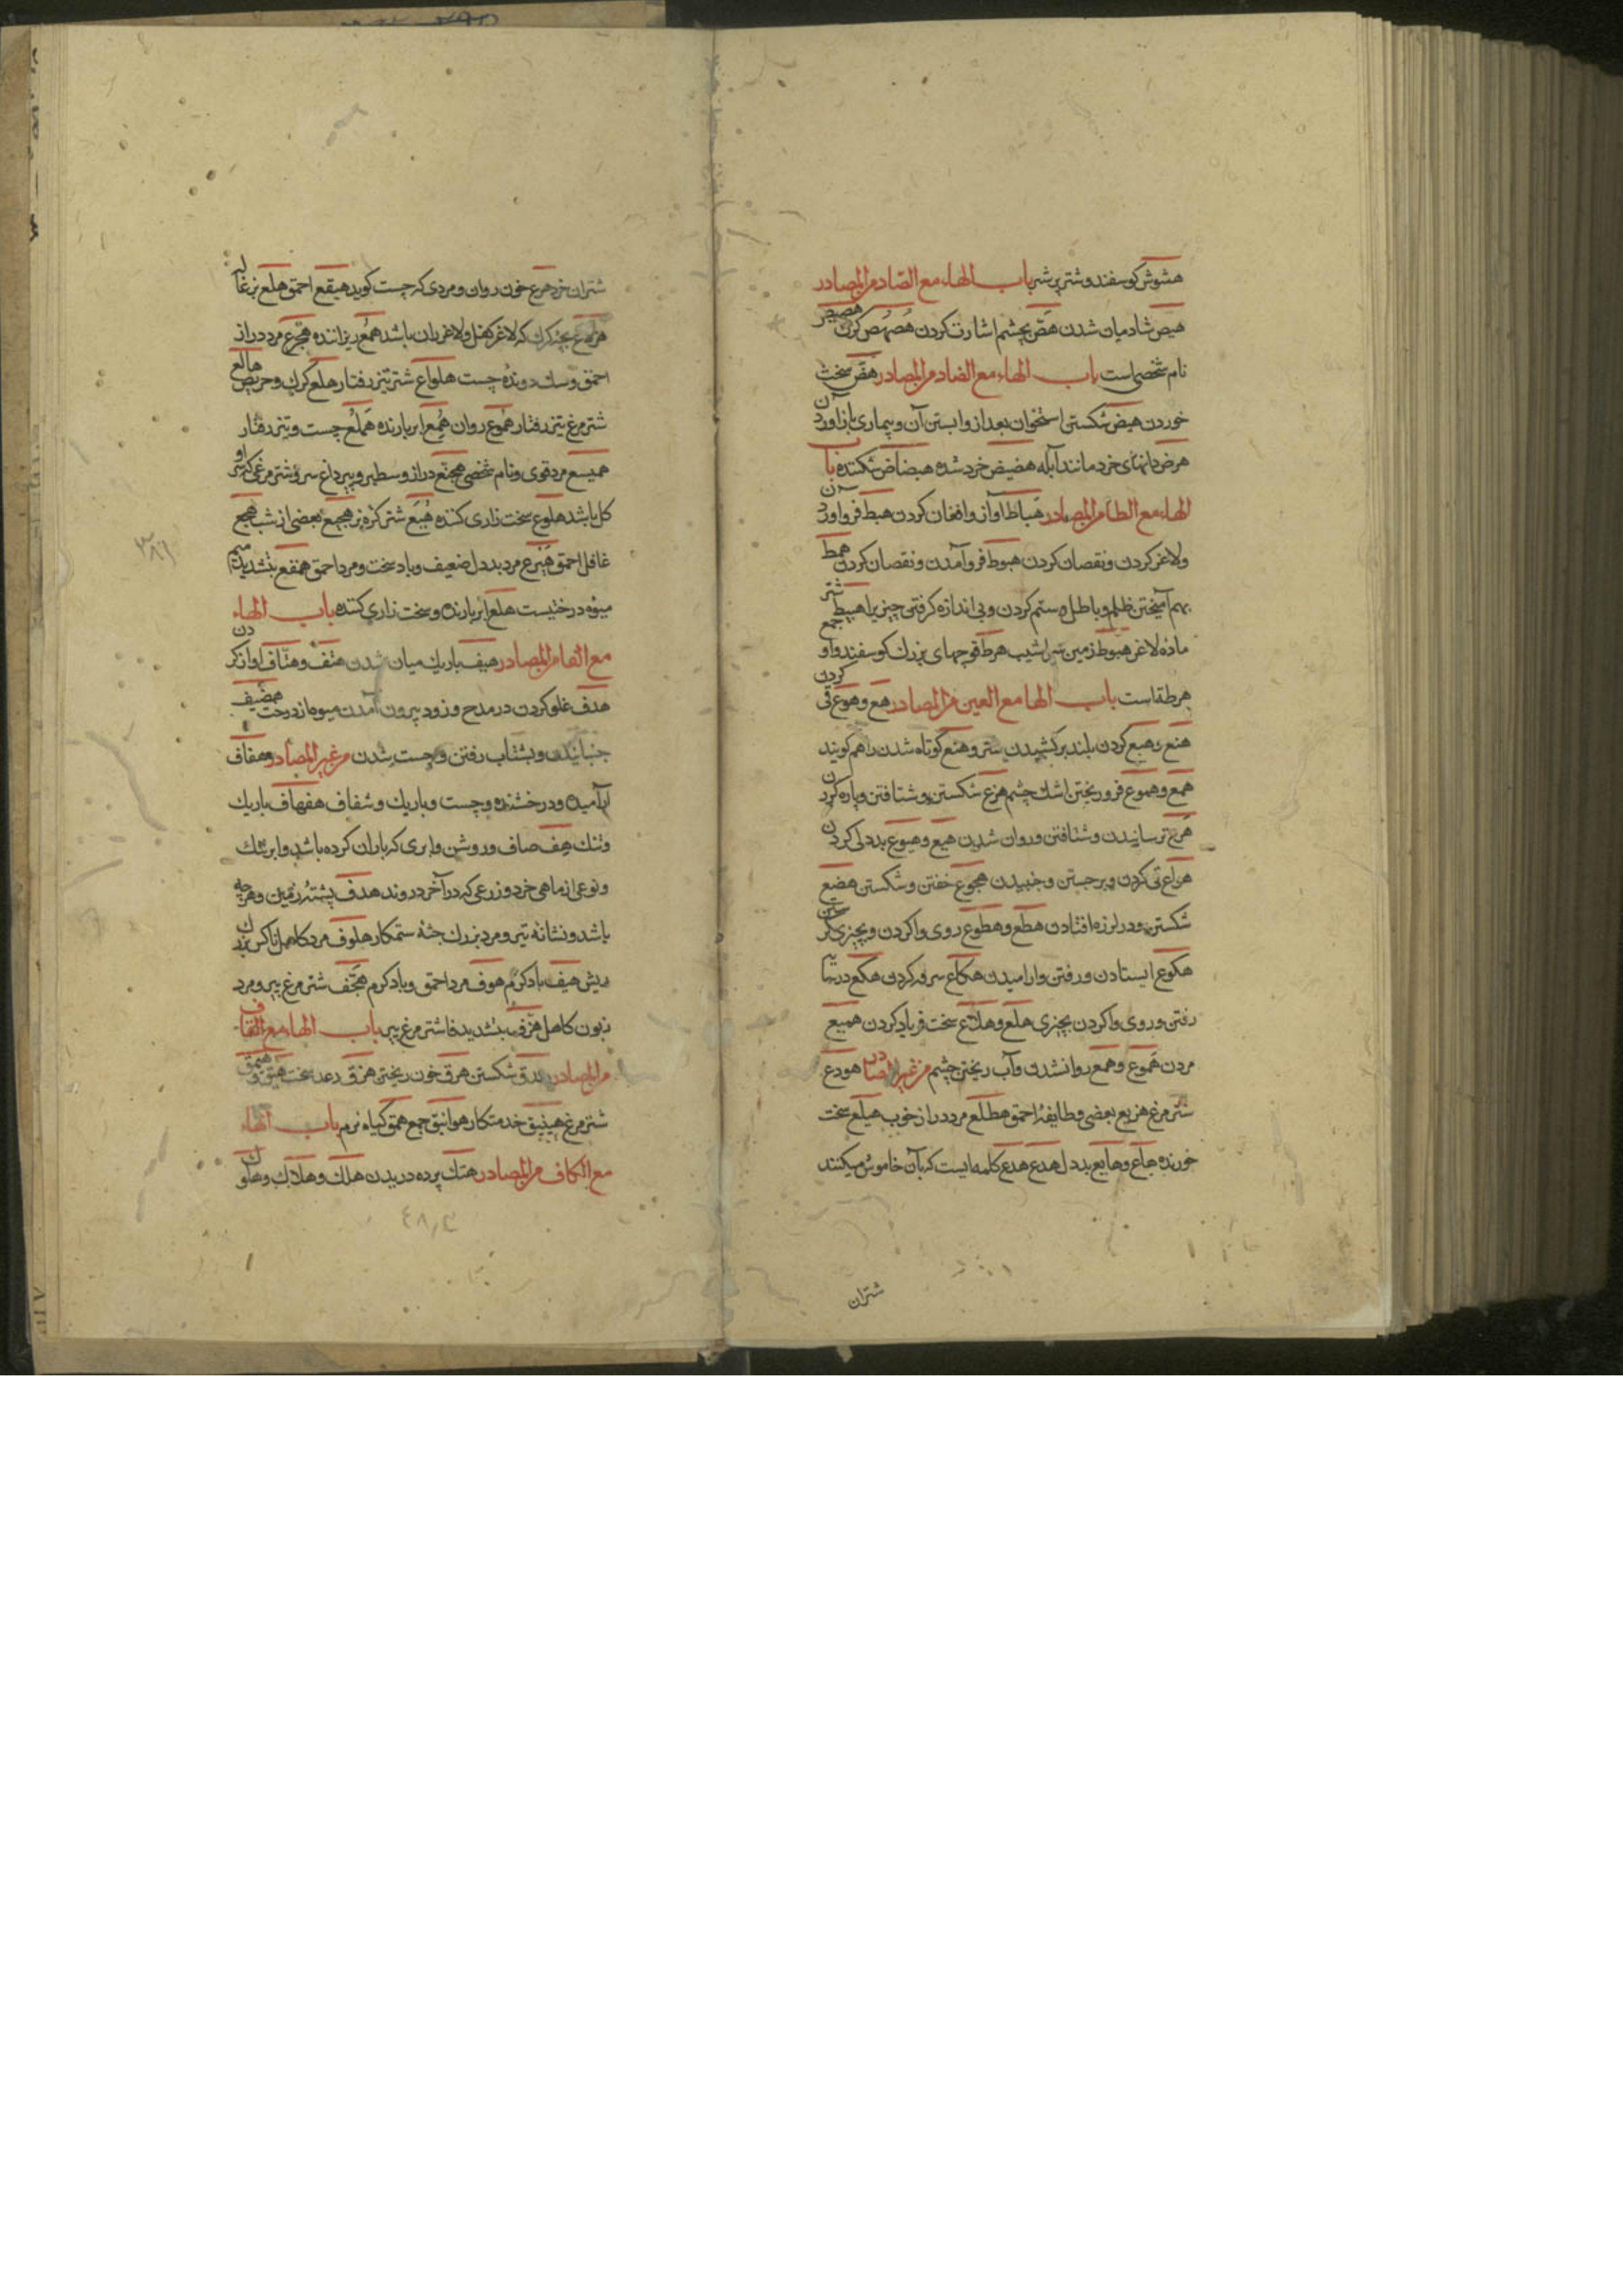 هشوش کوسفند و شتر پر شیر باب الهاء مع الصاد من المصادر
هیص شادمان شدن هصّ بچشم اشارت کردن هصهص کرک هصیص
نام شخصی است باب الهاء مع الضاد من المصادر هَضّ سخت
خوردن هیض شکستن استخوان بعد از وابستن آن و بیماری باز آوردن
هرض دانهای خرد مانند آبله هضیض خرد شده هضاض شکننده باب
الهاء مع الطاء من المصادر هَیاط آواز و افغان کردن هبط فرو آوردن
ولاغر کردن و نقصان کردن هبوط فرو آمدن و نقصان کردن همط
بهم آمیختن ظلم و باطل و ستم کردن و بی اندازه کرفتن چیزیرا هبیط شتر
ماده لاغر هبوط زمین سراشیب هرط قوچهای بزرک کوسفند و او جمع
هرطة است باب الها مع العین من المصادر هع و هوع قی کردن
هنع و هبع کردن بلند برکشیدن شتر و هنع کوتاه شدن را هم کویند
همع و هموع فرو ریختن اشک چشم هزع شکستن و شتافتن و پاره کردن
هَرع ترسانیدن و شتافتن و روان شدن هیع و هیوع بددلی کردن
هراع قی کردن و برجستن و جنبیدن هجوع خفتن و شکستن هضع
شکستن و در لرزه افتادن هطع و هطوع روی واکردن و بچیزی نکریستن
هکوع ایستادن و رفتن و ارامیدن هکاع سرفه کردن هکع در شتاب
رفتن و روی واکردن بچیزی هلع و هلاع سخت فریاد کردن همیع
مردن هَموع و همع روانشدن و آب ریختن چشم من غیر المصادر هودع
شتر مرغ هزیع بعضی و طایفهٔ احمق هطلع مرد دراز خوب هبلع سخت
خورنده هاع و هایع بددل هدع هدع کلمه ایست که بآن خاموش میکنند
شتران
شتران خرد هرع خون روان و مردی که چست کوید هبقع احمق هلع بزغاله
هرلع بچه کرک که لاغر کفل و لاغر ران باشد همع ریزاننده هجرع مرد دراز
احمق و سک دونده چست هلواع شتر تیز رفتار هلع کرک و حریص هالع
شتر مرغ تیز رفتار هموع روان همع ابر بارنده هملع چست و تیز رفتار
همیسع مرد قوی و نام شخصی هجنع دراز و سطبر و پیر داغ سر و شتر مرغی که سر او
کل باشد هلوع سخت زاری کننده هُبَع شتر کره نر هجمع بعضی از شب هجع
غافل احمق هَیرع مرد بددل ضعیف و باد سخت و مرد احمق همقع بتشدید میم
میوه درختیست هلع ابر بارنده و سخت زاری کننده باب الهاء
مع الفا من المصادر هیف باریک میان شدن هتف و هتاف آواز کردن
هدف غلو کردن در مدح و زود بیرون آمدن میوه از درخت
جنبانیدن و بشتاب رفتن و چست شدن من غیر المصادر و هفاف
آرامیده و درخشنده و چست و باریک و شفاف هفهاف باریک
و تنک هِف صاف و روشن و ابری که باران کرده باشد و ابر تنک
و نوعی از ماهی خرد و زرعی که در آخر دروند هدف پشتهٔ زمین و هرچه
باشد و نشانهٔ تیر و مرد بزرک جثه ستمکار هلوف مرد کاهل ناکس بزرک
ریش هیف باد کرم هوف مرد احمق و باد کرم هجف شتر مرغ پیر و مرد
زبون کاهل هزف بتشدید فا شتر مرغ پیر باب الهاء مع القاف
من المصادر هدق شکستن هرق خون ریختن هزق رعد سخت هیق
شتر مرغ هبنیق خدمتکار هوانیق جمع همق کیاه نرم باب الهاء
مع الکاف من المصادر هتک پرده دریدن هلک و هلاک و هلوک